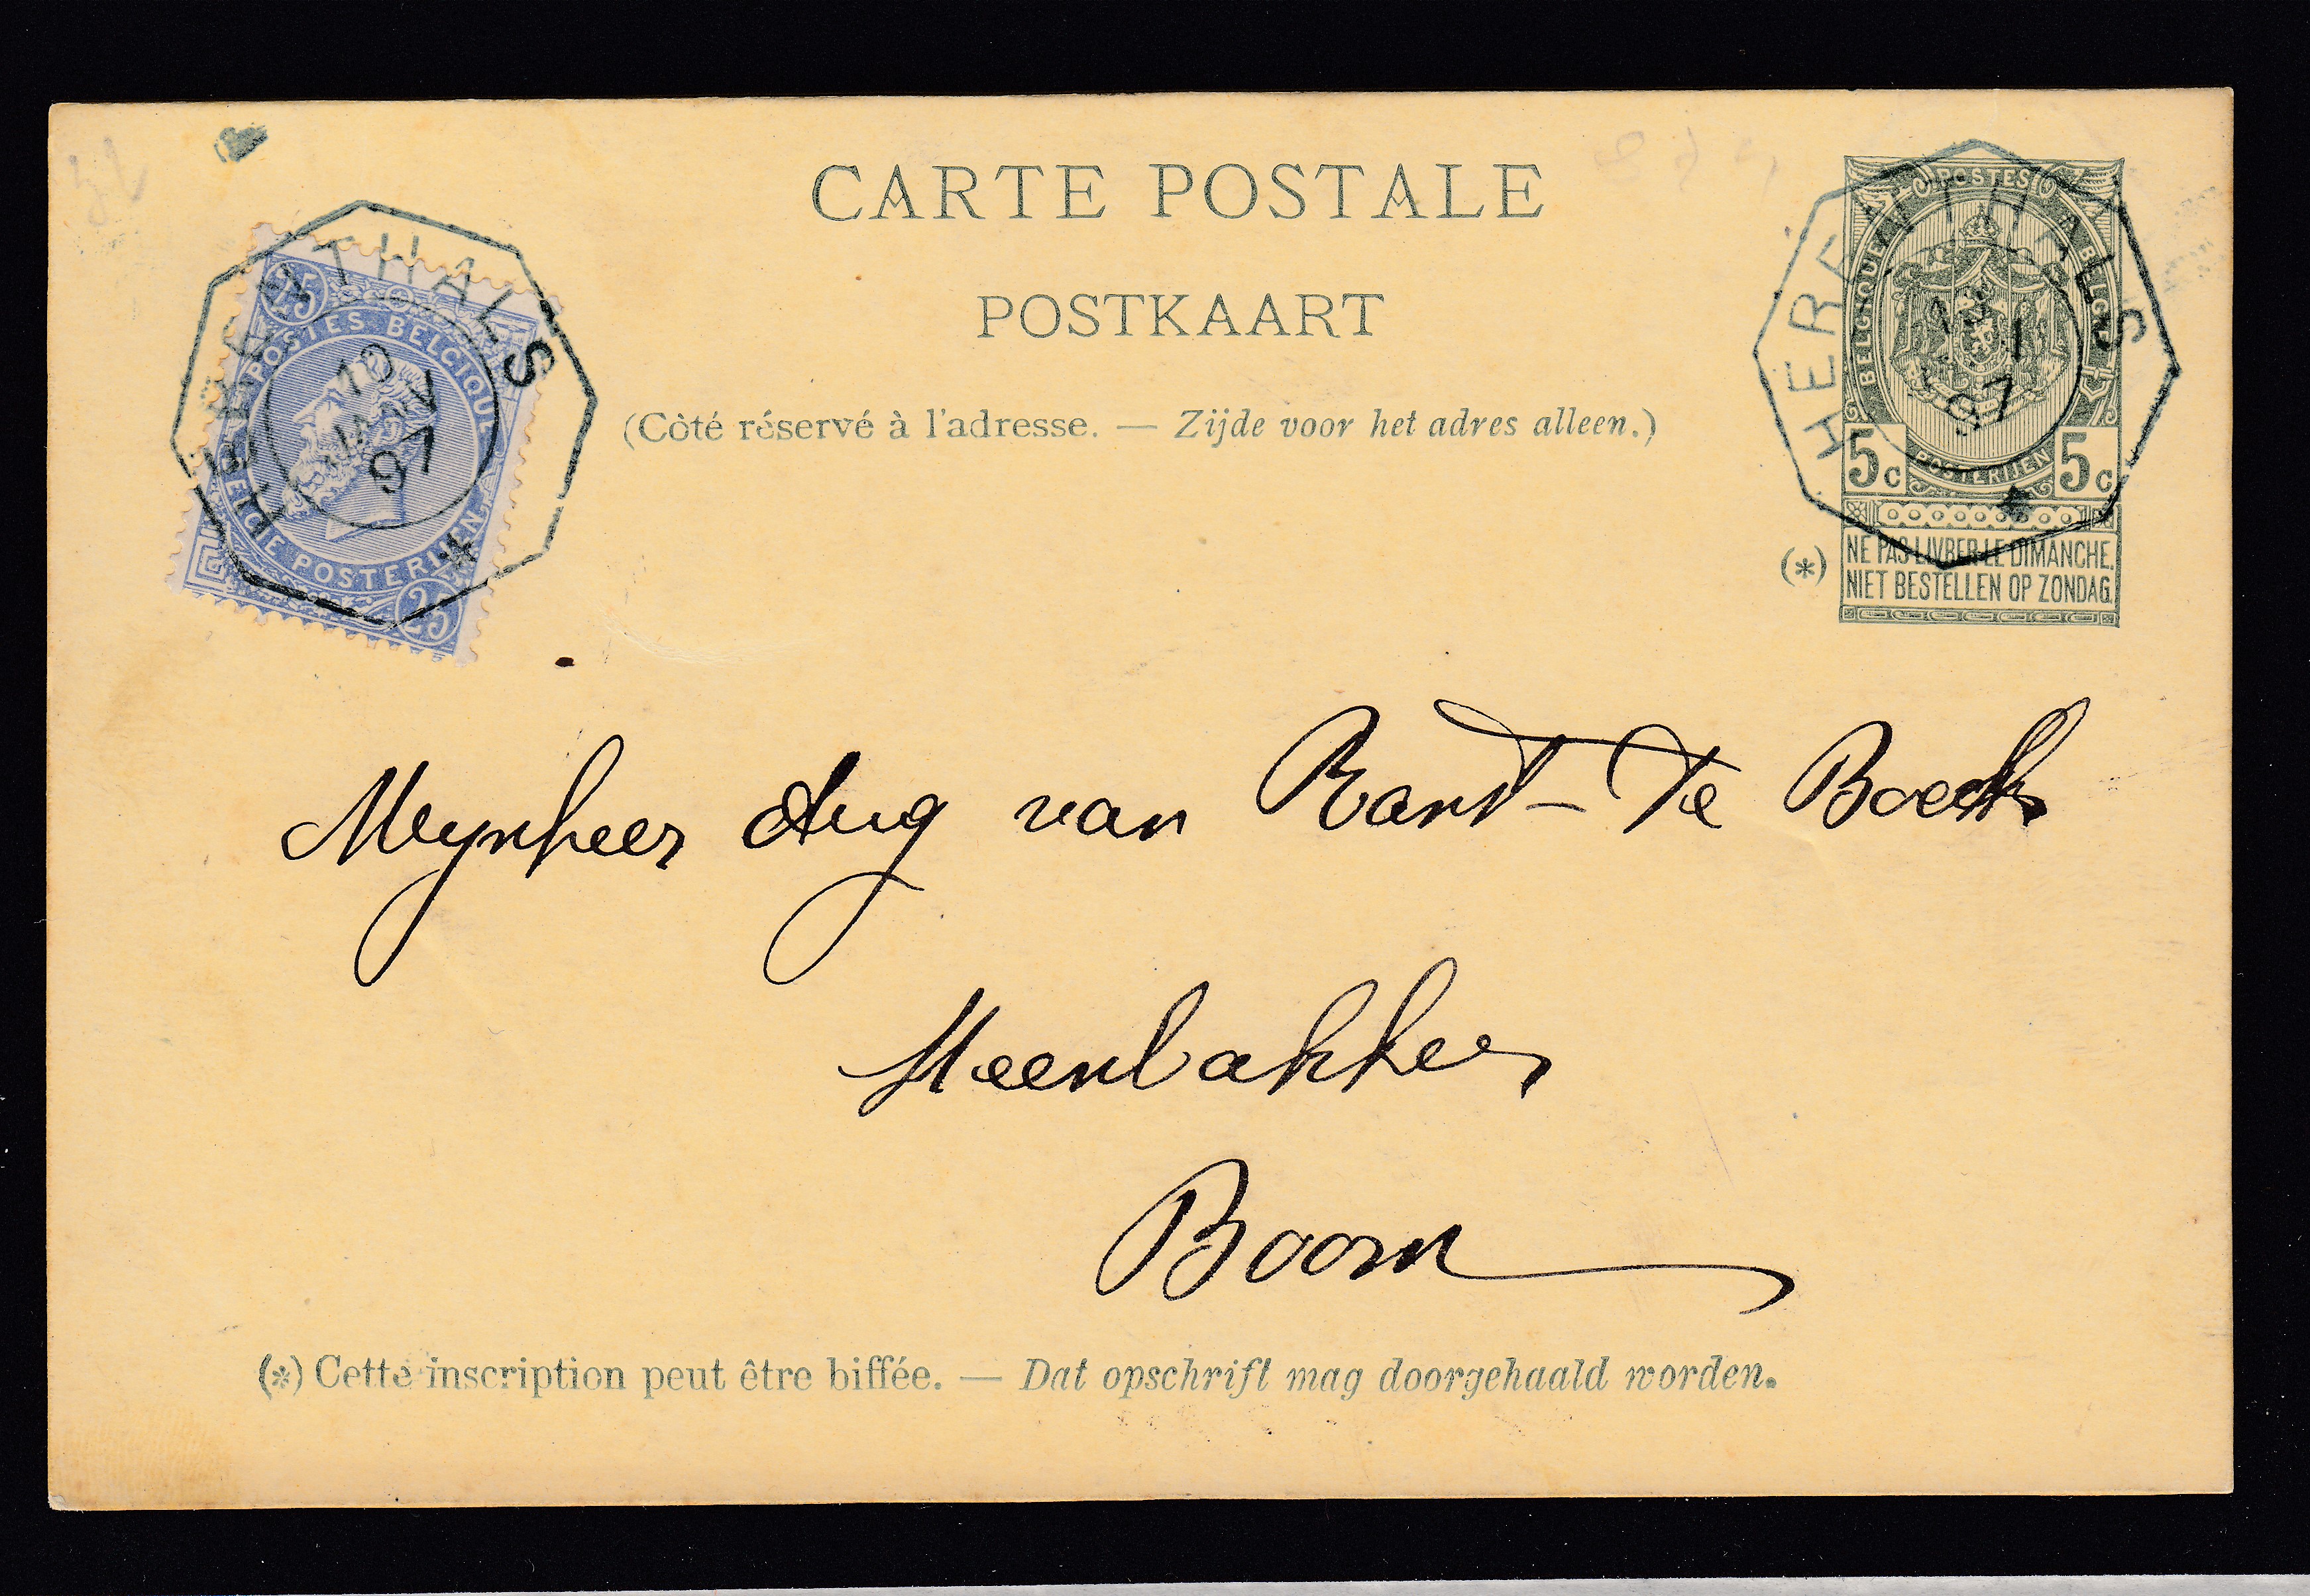 CARTE POSTALE
POSTKAART
(Côté réservé à l'adresse. — Zijde voor het adres alleen.)
HERENTHALS
10
JANV
97
25
POSTES BELGIQUE
BELGIE POSTERIJEN
25
HERENTHALS
97
POSTES
BELGIQUE BELGIE
POSTERIJEN
5c 5c
(*) NE PAS LIVRER LE DIMANCHE.
NIET BESTELLEN OP ZONDAG.
Mynheer Aug van Rant-Te Boeck
Steenbakker
Boom
(*) Cette inscription peut être biffée. — Dat opschrift mag doorgehaald worden.